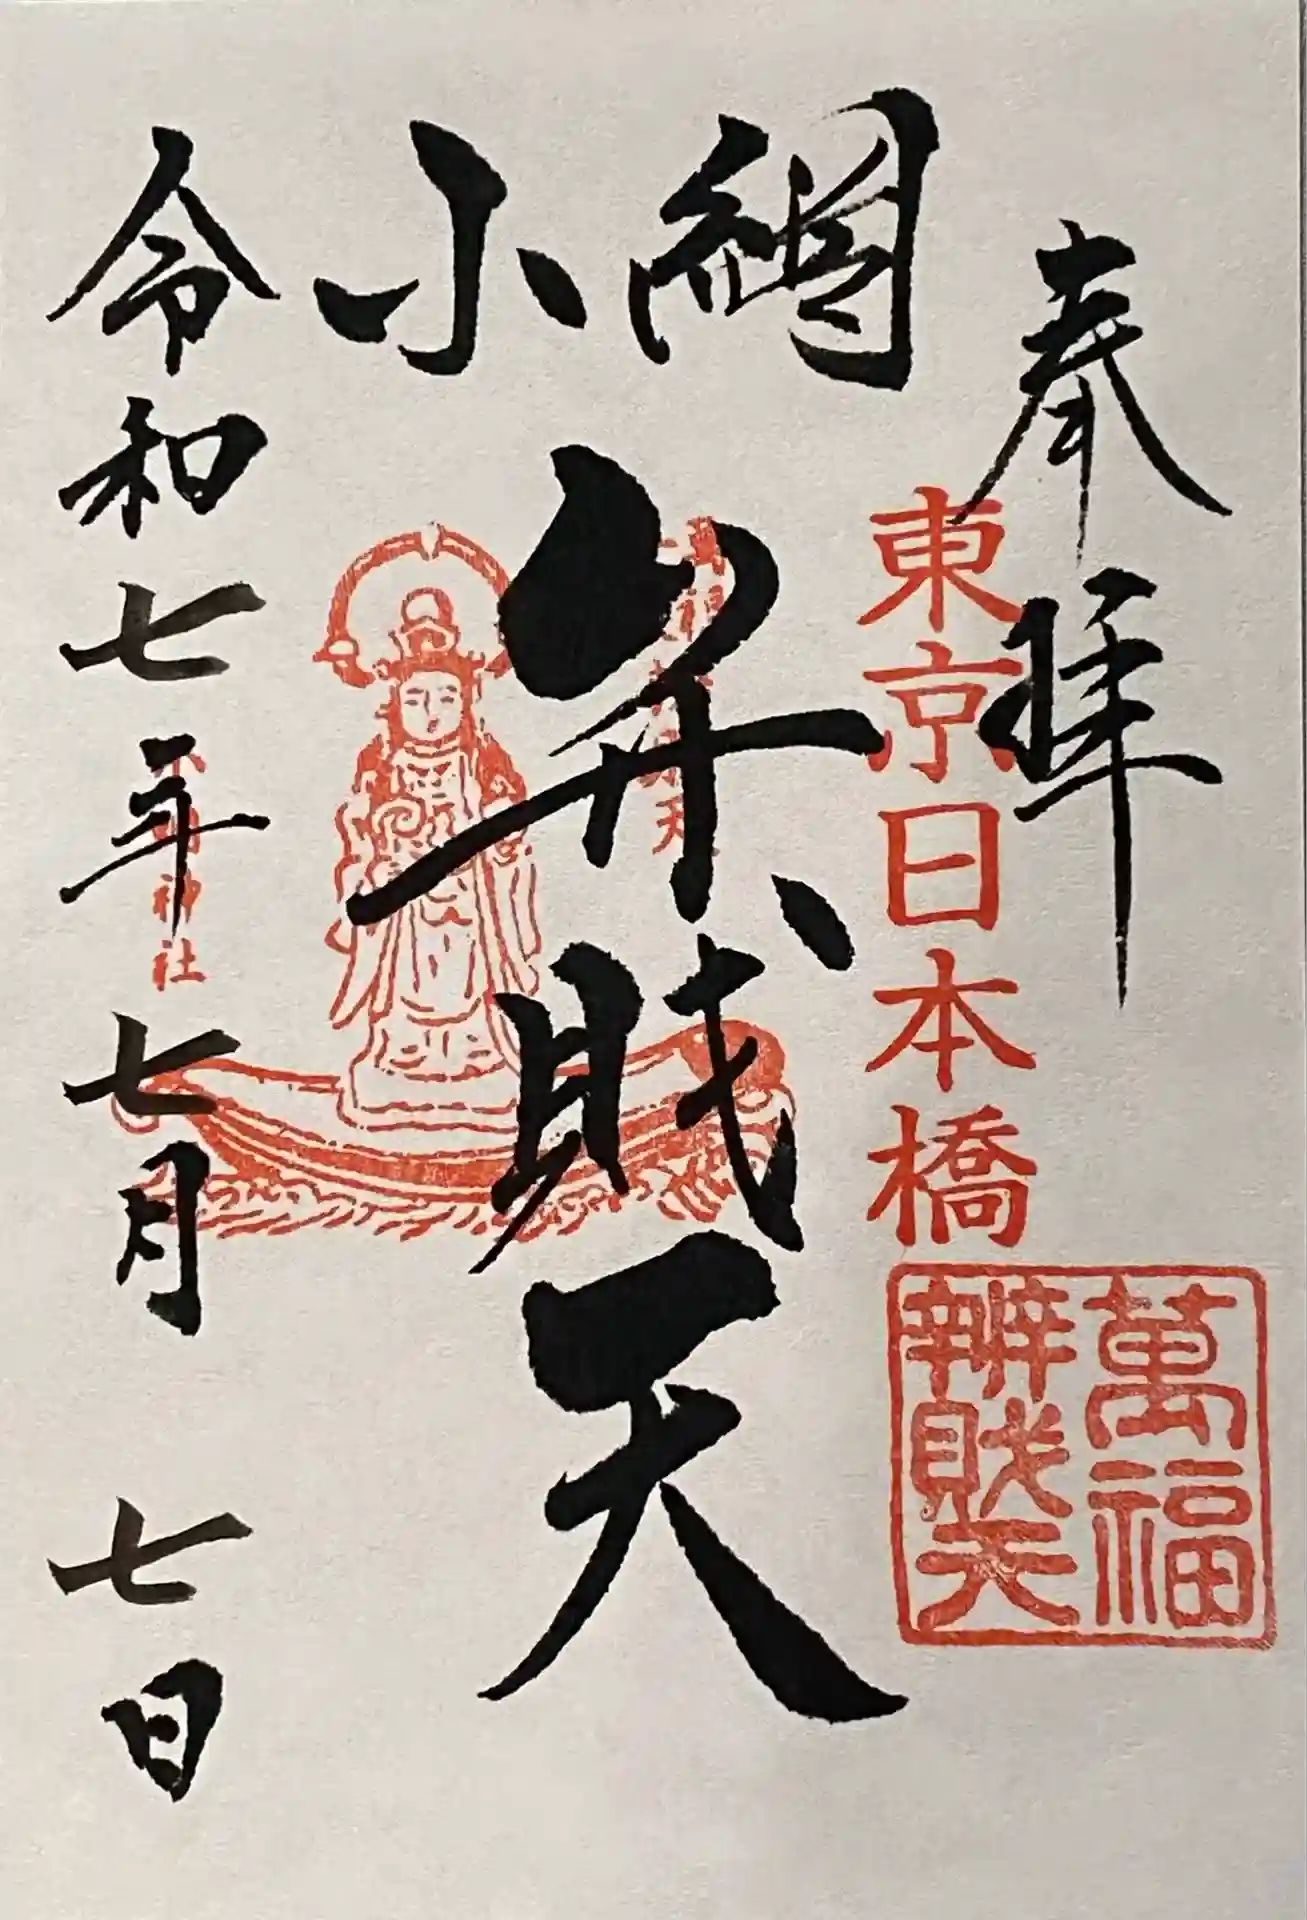 奉拝
東京日本橋
萬福
辨財天
小網
弁財天
令和七年七月七日
神社